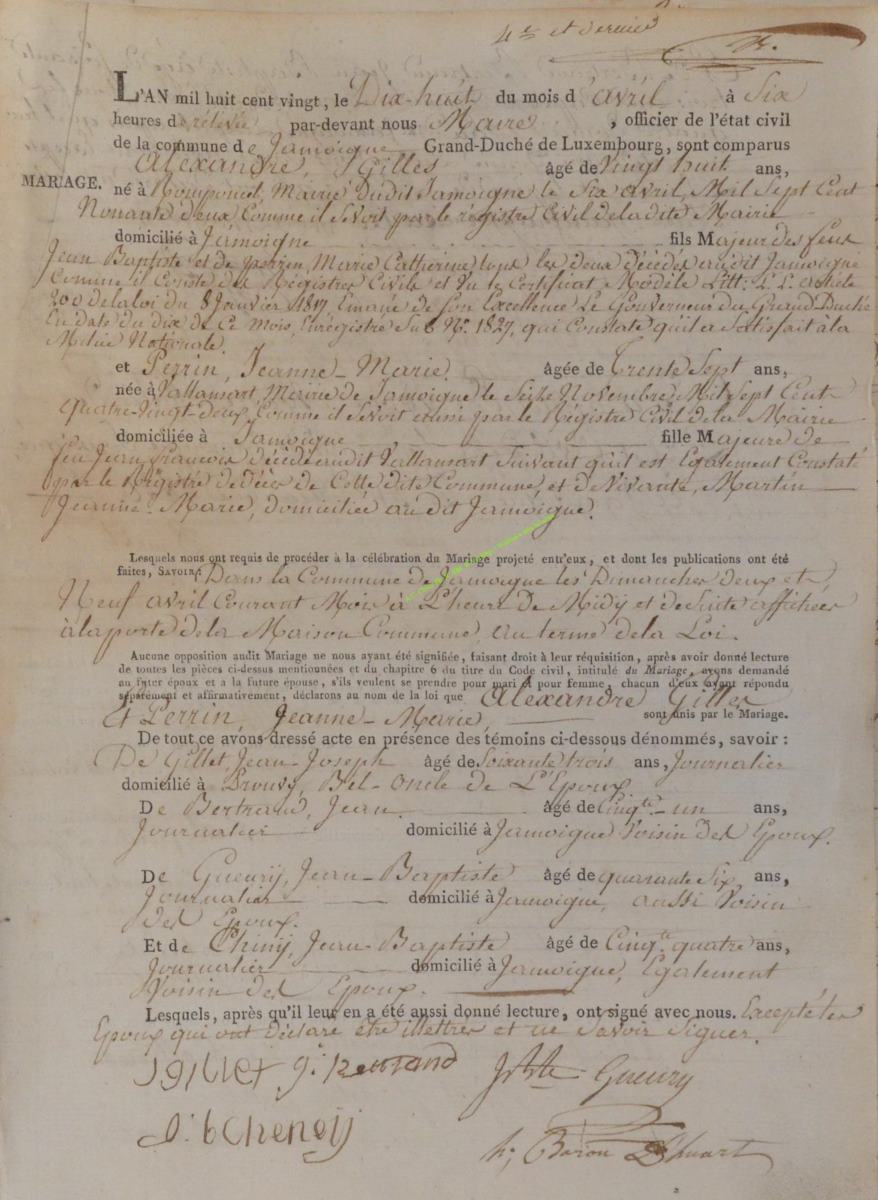 4e et dernier
L'AN mil huit cent vingt, le Dix-huit du mois d'avril à Six
heures de relevée par-devant nous Maire, officier de l'état civil
de la commune de Jamoigne Grand-Duché de Luxembourg, sont comparus
Alexandre, Gilles âgé de Vingt huit ans,
MARIAGE.
né à Romponcel, Mairie Dudit Jamoigne le Six avril, Mil Sept Cent
Nonante deux Comme il Se voit par le régistre Civil de la dite Mairie
domicilié à Jamoigne fils Majeur des feux
Jean Baptiste et de Perrin, Marie Catherine tous les deux décédés audit Jamoigne
Comme il Conste des Régistres Civils et Vu le Certificat Modèle Litt: L.L. article
200 de la loi du 8 Janvier 1817 Emané de Son Excellence Le Gouverneur du Grand Duché
En date du dix de Ce mois, Enrégistré Sub No. 1827, qui Constate qu'il a Satisfait à la
Milice Nationale.
et Perrin, Jeanne-Marie âgée de Trente Sept ans,
née à Vallansart, Mairie de Jamoigne le Seize Novembre Mil Sept Cent
quatre-Vingt deux, Comme il Se voit aussi par le Régistre Civil de la Mairie
domiciliée à Jamoigne fille Majeure de
feu Jean françois décédé audit Vallansart Suivant qu'il est Egalement Constaté
par le Régistre de décès de Cette dite Commune, et de Vivante, Martin
Jeanne-Marie, domiciliée audit Jamoigne.
Lesquels nous ont requis de procéder à la célébration du Mariage projeté entr'eux, et dont les publications ont été
faites, SAVOIR: Dans la Commune de Jamoigne les Dimanches deux et
Neuf avril Courant Mois à L'heure de Midy et de Suite affichées
à la porte de la Maison Commune, au terme de la Loi.
Aucune opposition audit Mariage ne nous ayant été signifiée, faisant droit à leur réquisition, après avoir donné lecture
de toutes les pièces ci-dessus mentionnées et du chapitre 6 du titre du Code civil, intitulé du Mariage, avons demandé
au futur époux et a la future épouse, s'ils veulent se prendre pour mari et pour femme, chacun d'eux ayant répondu
séparément et affirmativement, déclarons au nom de la loi que Alexandre Gilles
Et Perrin, Jeanne-Marie, sont unis par le Mariage.
De tout ce avons dressé acte en présence des témoins ci-dessous dénommés, savoir :
De Gillet, Jean-Joseph âgé de Soixante trois ans, Journalier
domicilié à Prouvy, Bel-Oncle de L'Epoux
De Bertrand, Jean âgé de Cinqte-un ans,
Journalier domicilié à Jamoigne Voisin des Epoux.
De Gueury, Jean-Baptiste âgé de quarante Six ans,
Journalier domicilié à Jamoigne, aussi Voisin
des Epoux.
Et de Chiny, Jean-Baptiste âgé de Cinqte quatre ans,
Journalier domicilié à Jamoigne, Egalement
Voisin des Epoux.
Lesquels, après qu'il leur en a été aussi donné lecture, ont signé avec nous. Excepté les
Epoux qui ont déclaré être illettrés et ne Savoir Signer.
J gillet j. Bertrand Jbte Gueury
Baron D'huart